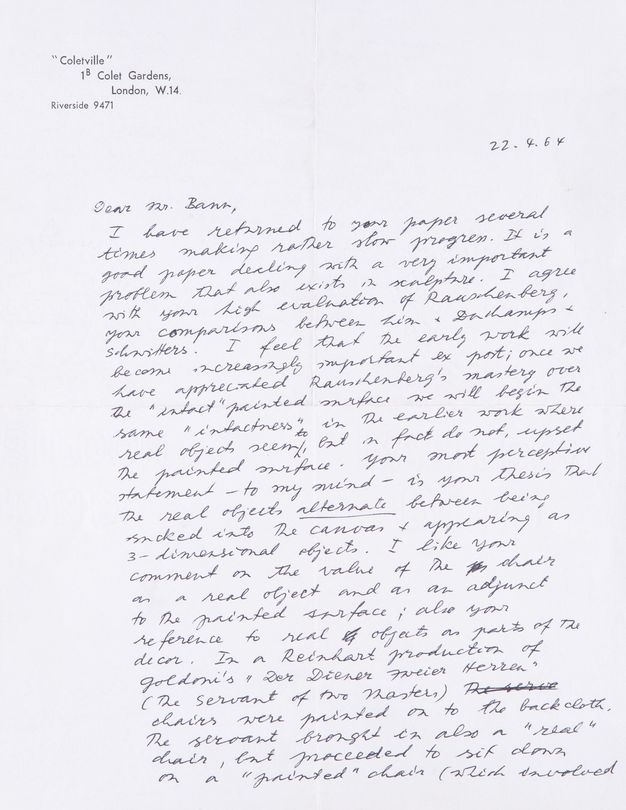 "Coletville"
1B Colet Gardens,
London, W.14.
Riverside 9471
22.4.64
Dear Mr. Bann,
I have returned to your paper several
times making rather slow progress. It is a
good paper dealing with a very important
problem that also exists in sculpture. I agree
with your high evaluation of Rauschenberg,
your comparisons between him + Duchamps +
Schwitters. I feel that the early work will
become increasingly important ex post; once we
have appreciated Rauschenberg's mastery over
the "intact" painted surface we will begin the
same "intactness" in the earlier work where
real objects seem to, but in fact do not, upset
the painted surface. Your most perceptive
statement - to my mind - is your thesis that
the real objects alternate between being
sucked into the canvas + appearing as
3-dimensional objects. I like your
comment on the value of the chair
as a real object and as an adjunct
to the painted surface; also your
reference to real objects as parts of the
decor. In a Reinhart production of
Goldoni's "Der Diener zweier Herren"
(The Servant of two Masters) The serve
chairs were painted on to the backcloth.
The servant brought in also a "real"
chair, but proceeded to sit down
on a "painted" chair (which involved